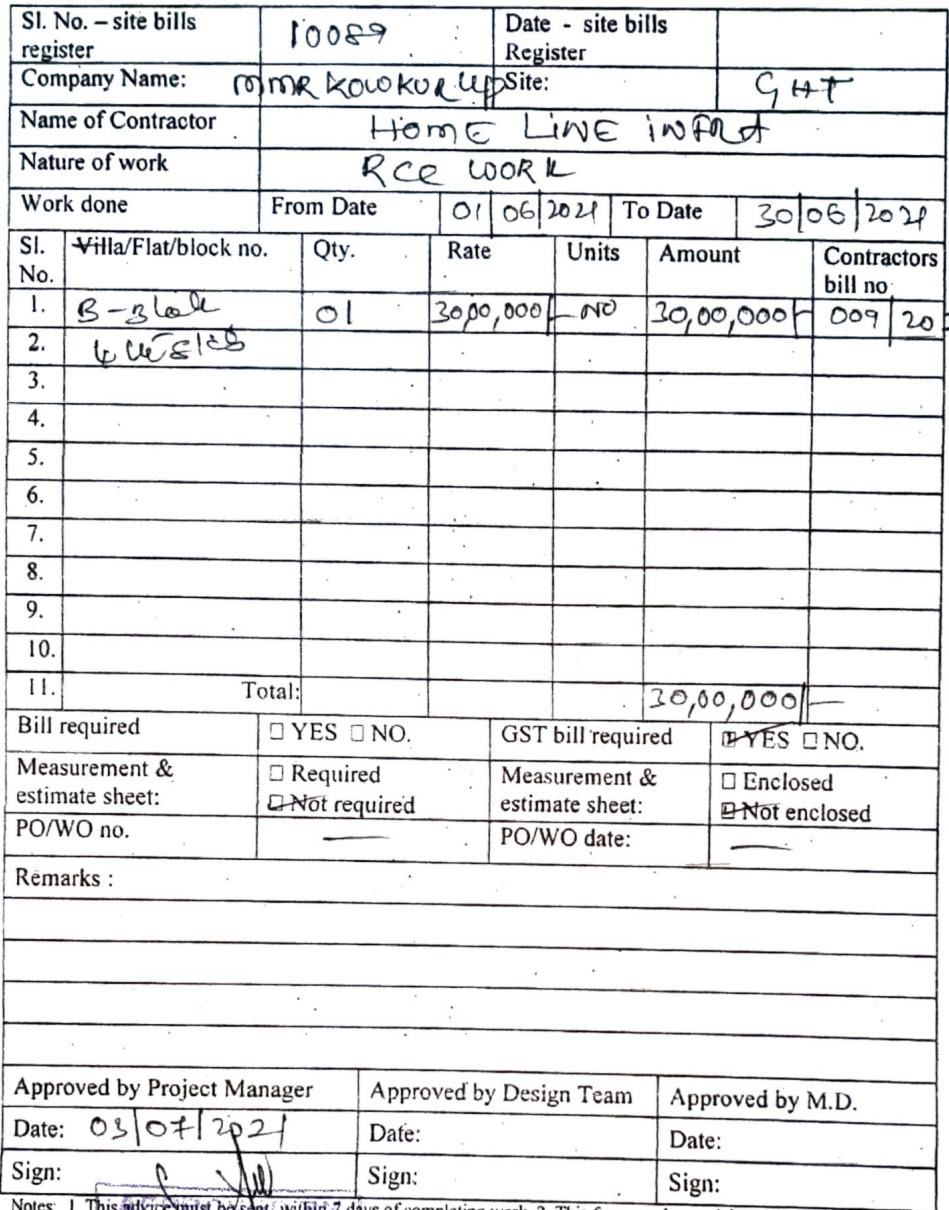 Sl. No. – site bills register 10089 Date - site bills Register
Company Name: MMR KOWKUR LLP Site: GHT
Name of Contractor HOME LINE INFRA
Nature of work RCC WORK
Work done From Date 01/06/2021 To Date 30/06/2021
Sl. No. Villa/Flat/block no. Qty. Rate Units Amount Contractors bill no
1. B-Block 01 30,00,000/- NO 30,00,000/- 009/20
2.
3.
4.
5.
6.
7.
8.
9.
10.
11. Total: 30,00,000/-
Bill required □ YES □ NO. GST bill required □ YES □ NO.
Measurement & estimate sheet: □ Required □ Not required Measurement & estimate sheet: □ Enclosed □ Not enclosed
PO/WO no. — PO/WO date: —
Remarks :
Approved by Project Manager Approved by Design Team Approved by M.D.
Date: 03/07/2021 Date: Date:
Sign: Sign: Sign:
Notes: 1. This advice must be sent within 7 days of completing work. 2. This